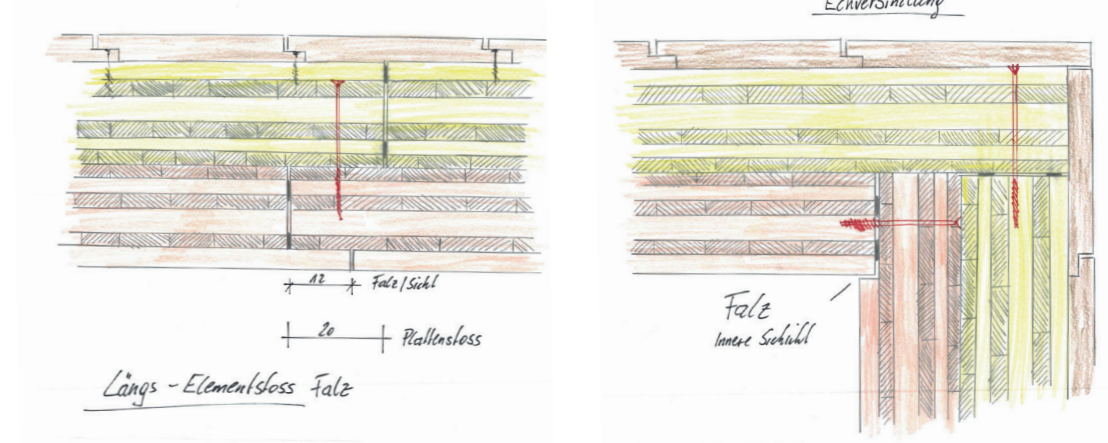 12 Falz/Sicht
20 Plattenstoss
Längs - Elementstoss Falz
Falz
Innere Schicht